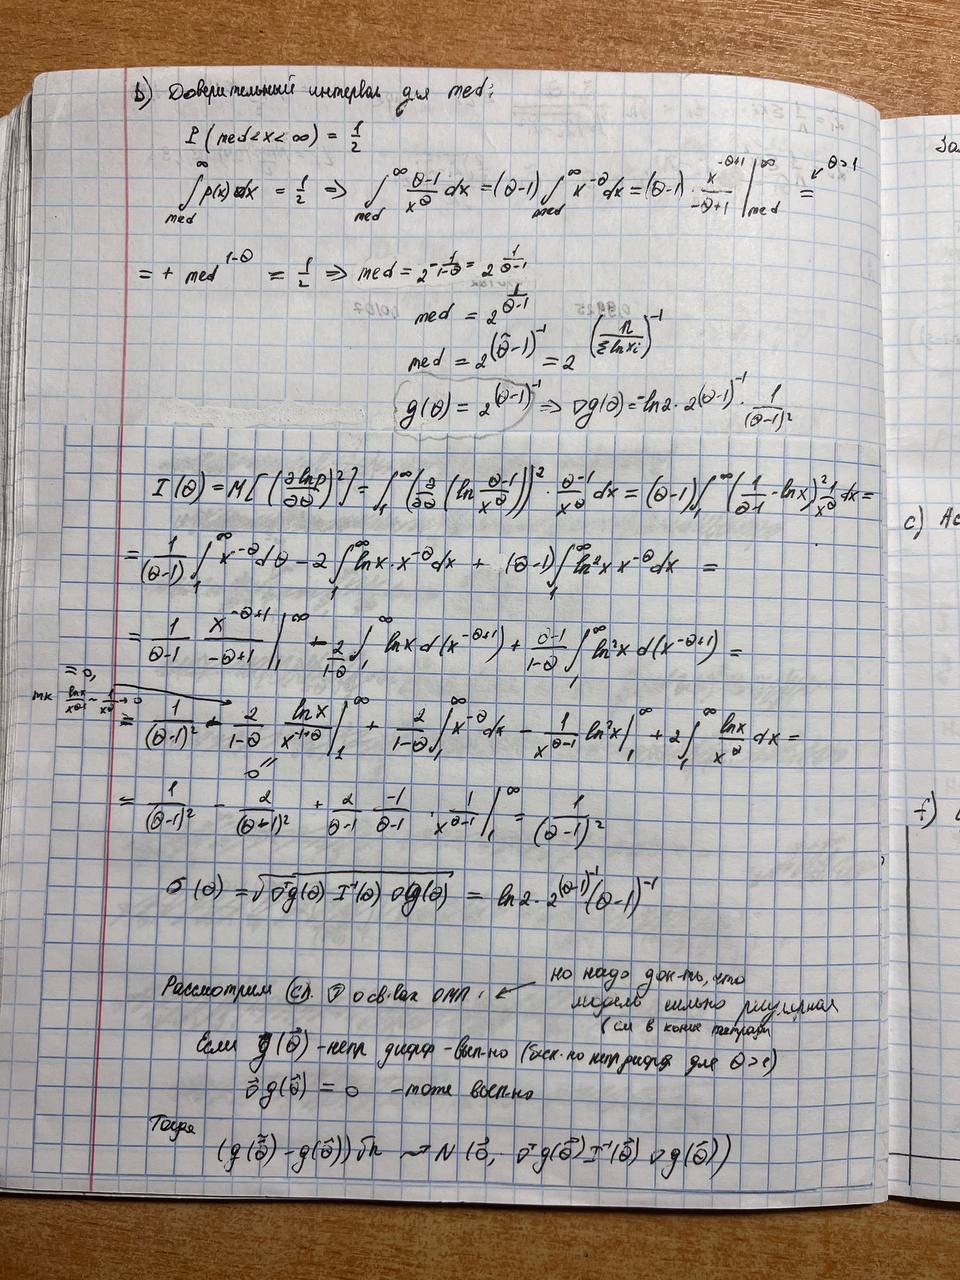 b) Доверительный интервал для med:
I (med < x < ∞) = 1/2
∫_med^∞ p(x) dx = 1/2 ⇒ ∫_med^∞ (θ-1)/x^θ dx = (θ-1) ∫_med^∞ x^{-θ} dx = (θ-1) · x^{-θ+1}/(-θ+1) |_med^∞ = θ>1
= + med^{1-θ} = 1/2 ⇒ med = 2^{-1/(1-θ)} = 2^{1/(θ-1)}
med = 2^{1/(θ-1)}
med = 2^{(θ̃-1)^{-1}} = 2^{(n/(Σ ln xi))^{-1}}
g(θ) = 2^{(θ-1)^{-1}} ⇒ ∇g(θ) = -ln2 · 2^{(θ-1)^{-1}} · 1/(θ-1)^2
I(θ) = M[(∂lnp/∂θ)^2] = ∫_1^∞ (∂/∂θ (ln (θ-1)/x^θ))^2 · (θ-1)/x^θ dx = (θ-1) ∫_1^∞ (1/(θ-1) - lnx)^2 1/x^θ dx =
= 1/(θ-1) ∫_1^∞ x^{-θ} dθ - 2 ∫_1^∞ lnx · x^{-θ} dx + (θ-1) ∫_1^∞ ln^2 x x^{-θ} dx =
= 1/(θ-1) x^{-θ+1}/(-θ+1) |_1^∞ - 2/(1-θ) ∫_1^∞ lnx d(x^{-θ+1}) + (θ-1)/(1-θ) ∫_1^∞ ln^2 x d(x^{-θ+1}) =
= 0,
тк lnx/x^{θ-1} ~ 1/x^θ → 0
= 1/(θ-1)^2 - 2/(1-θ) lnx/x^{-1+θ} |_1^∞ + 2/(1-θ) ∫_1^∞ x^{-θ} dx - 1/x^{θ-1} ln^2 x |_1^∞ + 2 ∫_1^∞ lnx/x^θ dx =
0
= 1/(θ-1)^2 - 2/(θ-1)^2 + 2/(θ-1) · -1/(θ-1) · 1/x^{θ-1} |_1^∞ = 1/(θ-1)^2
σ(θ) = √(∇^T g(θ) I^{-1}(θ) ∇g(θ)) = ln2 · 2^{(θ-1)^{-1}} (θ-1)^{-1}
но надо док-ть, что
Рассмотрим сл. о св-вах ОМП: ← модель сильно регулярная
(см в конце тетради
Если g(θ⃗) - непр дифф - вып-но (беск. но непр дифф для θ>1)
∇⃗ g(θ⃗) = 0 - тоже вып-но
Тогда
(g(θ̃⃗) - g(θ⃗)) √n → N(0⃗, ∇^T g(θ⃗) I^{-1}(θ⃗) ∇g(θ⃗))
c) Ас
f)